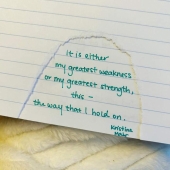 it is either
my greatest weakness
or my greatest strength,
this –
the way that I hold on.
Kristina